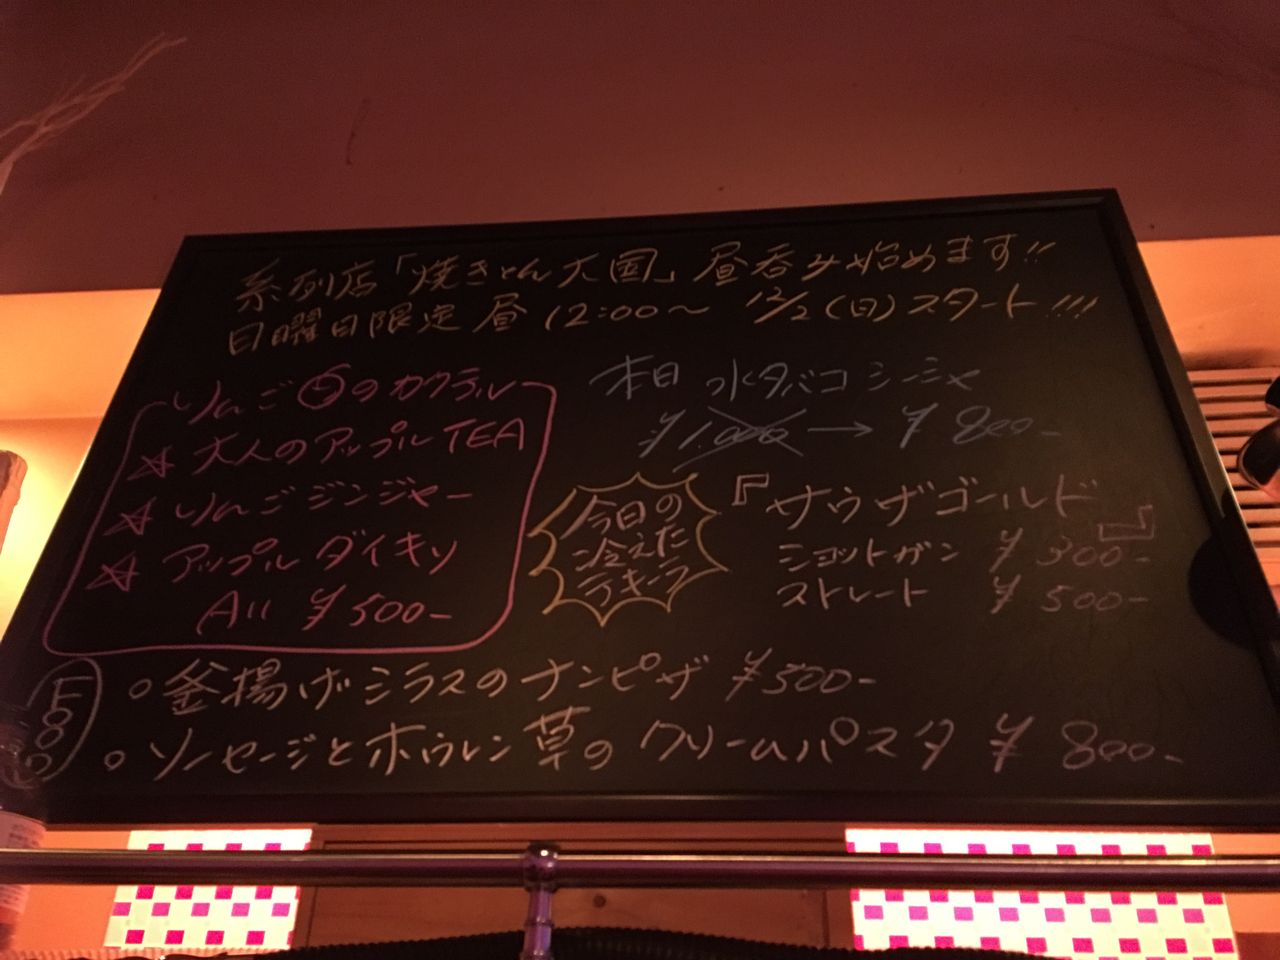 系列店「焼きとん大国」昼呑み始めます!!
日曜日限定 昼 12:00〜 12/2(日)スタート!!!
りんごのカクテル
☆大人のアップルTEA
☆りんごジンジャー
☆アップルダイキリ
All ¥500-
本日 水タバコ シーシャ
¥1,000 → ¥800-
今日の
冷えた
テキーラ
『サウザゴールド』
ショットガン ¥300-
ストレート ¥500-
FOOD
○釜揚げシラスのナンピザ ¥500-
○ソーセージとホウレン草のクリームパスタ ¥800-